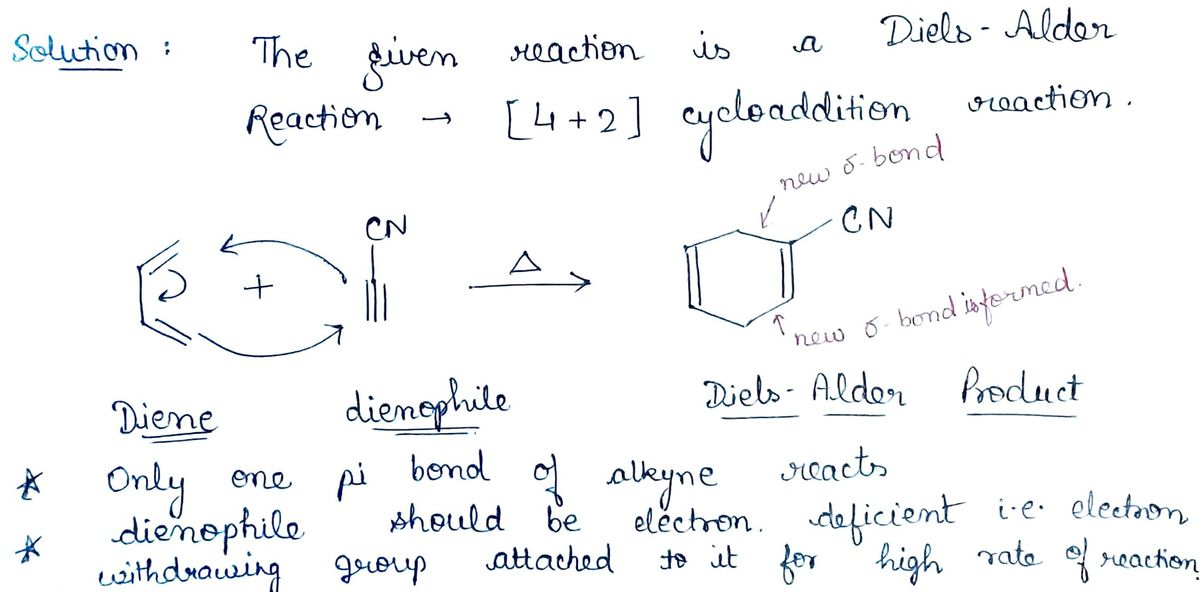 Solution : The given reaction is a Diels-Alder
Reaction → [4+2] cycloaddition reaction.
new σ-bond
CN
CN
+
Δ
new σ-bond is formed.
Diene dienophile Diels-Alder Product
* Only one pi bond of alkyne reacts
* dienophile should be electron. deficient i.e. electron
withdrawing group attached to it for high rate of reaction.